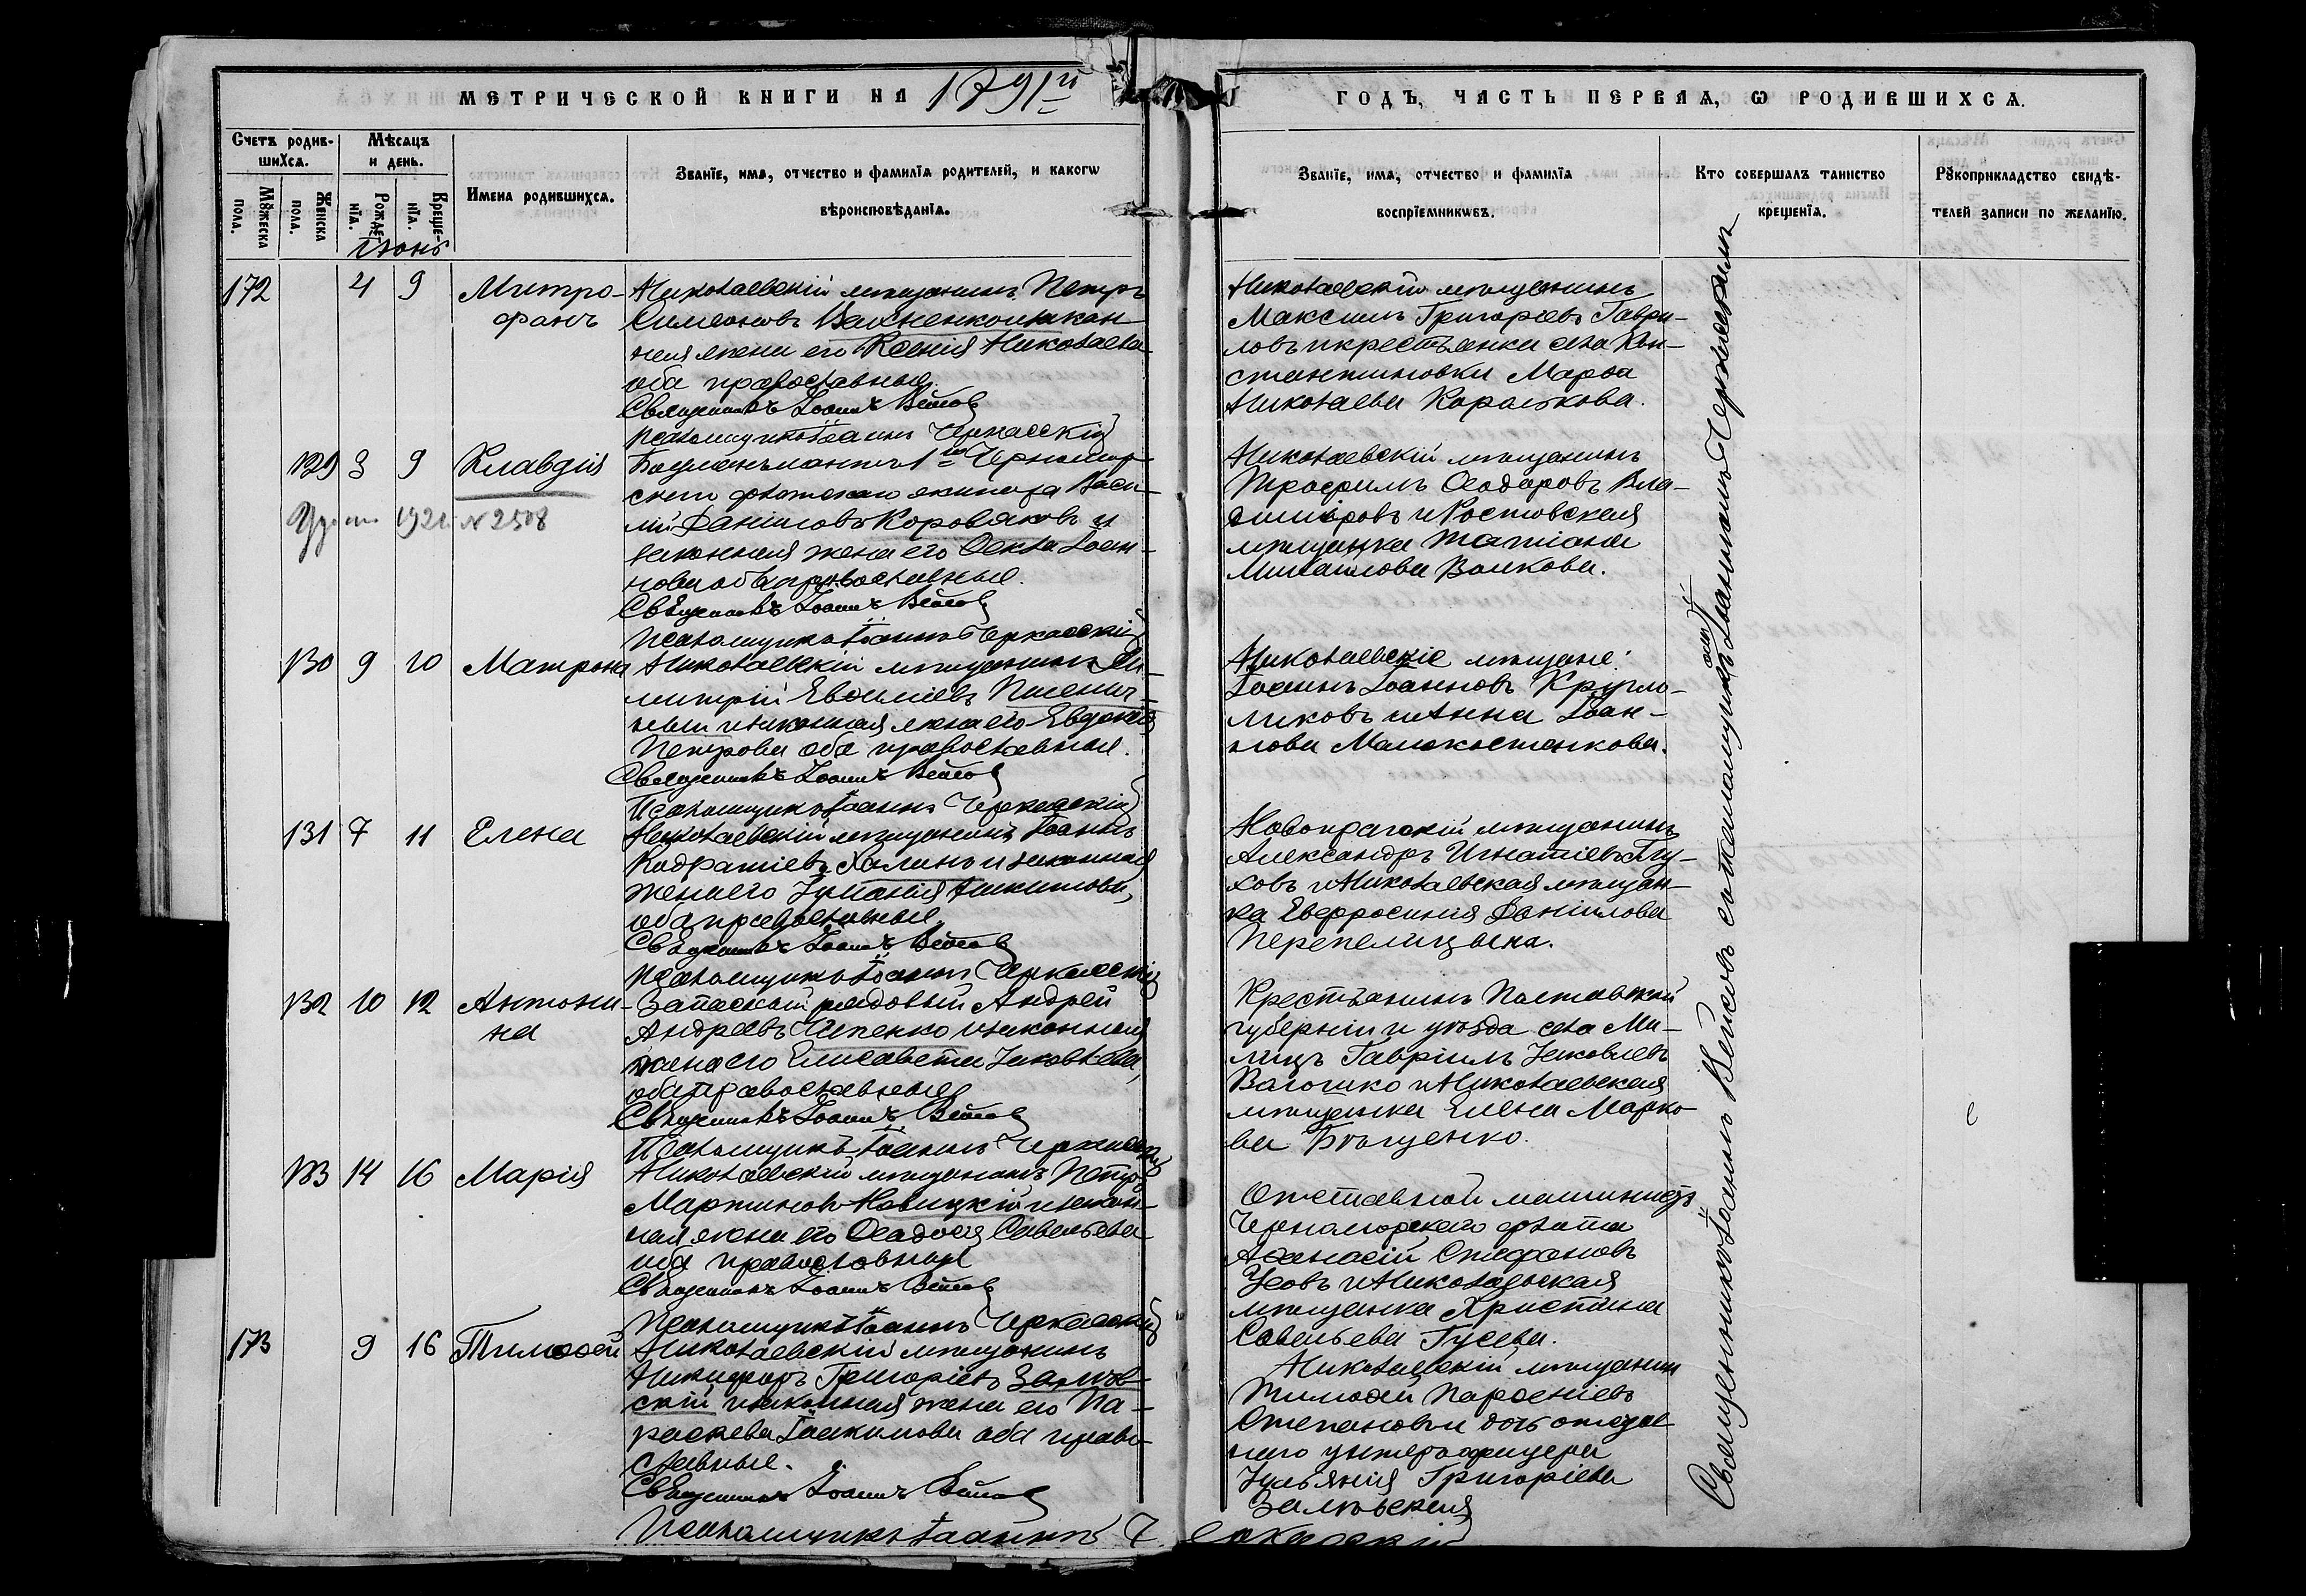 МЕТРИЧЕСКОЙ КНИГИ НА 1891й ГОДЪ, ЧАСТЬ ПЕРВАЯ, Ѡ РОДИВШИХСѦ.
Счетъ родив-
шихсѧ.
Мѣсѧцъ
и день.
Мꙋжеска
пола.
Женска
пола.
Рожде-
нїѧ.
Креще-
нїѧ.
Имена родившихсѧ.
Званїе, имѧ, отчество и фамилїѧ родителей, и какогѡ
вѣроисповѣданїѧ.
Званїе, имѧ, отчество и фамилїѧ
воспрїемникѡвъ.
Кто совершалъ таинство
крещенїѧ.
Рꙋкоприкладство свидѣ-
телей записи по желанїю.
Іюнь
172 4 9 Митро-
фанъ
Николаевскій мѣщанинъ Петръ
Симеоновъ
жена его Ксенія Николаева
оба православные.
Священникъ Іоаннъ Вейсовъ
Псаломщикъ Іоаннъ Черкасскій
Николаевскій мѣщанинъ
Максимъ Григорьевъ Гаври-
ловъ и крестьянка села Кон-
стантиновки Марѳа
Николаева Короткова.
129 3 9 Клавдія
1921 N 2508
1го Черномор-
скаго флотскаго экипажа Васи-
лій Даниловъ Коровяковъ и
законная жена его Ѳекла Іоан-
нова оба православные.
Священникъ Іоаннъ Вейсовъ
Псаломщикъ Іоаннъ Черкасскій
Николаевскій мѣщанинъ
Трофимъ Ѳеодоровъ Вла-
диміровъ и Ростовская
мѣщанка Татіана
Михайлова Волкова.
130 9 10 Матрона
Николаевскій мѣщанинъ Ди-
митрій Евѳиміевъ Пшенич-
ный и законная жена его Евдокія
Петрова оба православные.
Священникъ Іоаннъ Вейсовъ
Псаломщикъ Іоаннъ Черкасскій
Николаевскіе мѣщане:
Іоаннъ Іоанновъ Кругло-
ликовъ и Анна Іоан-
нова Малокостенкова.
131 7 11 Елена
Николаевскій мѣщанинъ Іоаннъ
Кодратіевъ Халинъ и законная
жена его Іуліанія Никитова,
оба православные.
Священникъ Іоаннъ Вейсовъ
Псаломщикъ Іоаннъ Черкасскій
Новопрагскій мѣщанинъ
Александръ Игнатіевъ Глу-
ховъ и Николаевская мѣщан-
ка Евфросинія Данилова
Перепелицына.
132 10 12 Антони-
на
Запасный рядовый Андрей
Андреевъ Чепенко и законная
жена его Елисавета Іаковлева,
оба православные
Священникъ Іоаннъ Вейсовъ
Псаломщикъ Іоаннъ Черкасскій
Крестьянинъ Полтавской
губерніи и уѣзда села Ми-
лицъ Гавріилъ Іаковлевъ
и Николаевская
мѣщанка Елена Марко-
ва
133 14 16 Марія
Николаевскій мѣщанинъ Петръ
Мартиновъ Новицкій и закон-
ная жена его Ѳеодосія Савельева
оба православные
Священникъ Іоаннъ Вейсовъ
Псаломщикъ Іоаннъ Черкасскій
Отставной машинистъ
Черноморскаго флота
Аѳанасій Стефановъ
Усовъ и Николаевская
мѣщанка Христина
Савельева Гусева.
173 9 16 Тимоѳей
Николаевскій мѣщанинъ
Никифоръ Григоріевъ Залѣв-
скій и законная жена его Па-
раскева Іоакимова оба право-
славные.
Священникъ Іоаннъ Вейсовъ
Псаломщикъ Іоаннъ Черкасскій
Николаевскій мѣщанинъ
Тимоѳей Парѳеніевъ
Степановъ и дочь отстав-
наго унтеръ-офицера
Іульянія Григоріева
Залѣвская
Священникъ Іоаннъ Вейсовъ съ псаломщикомъ Іоанномъ Черкасскимъ